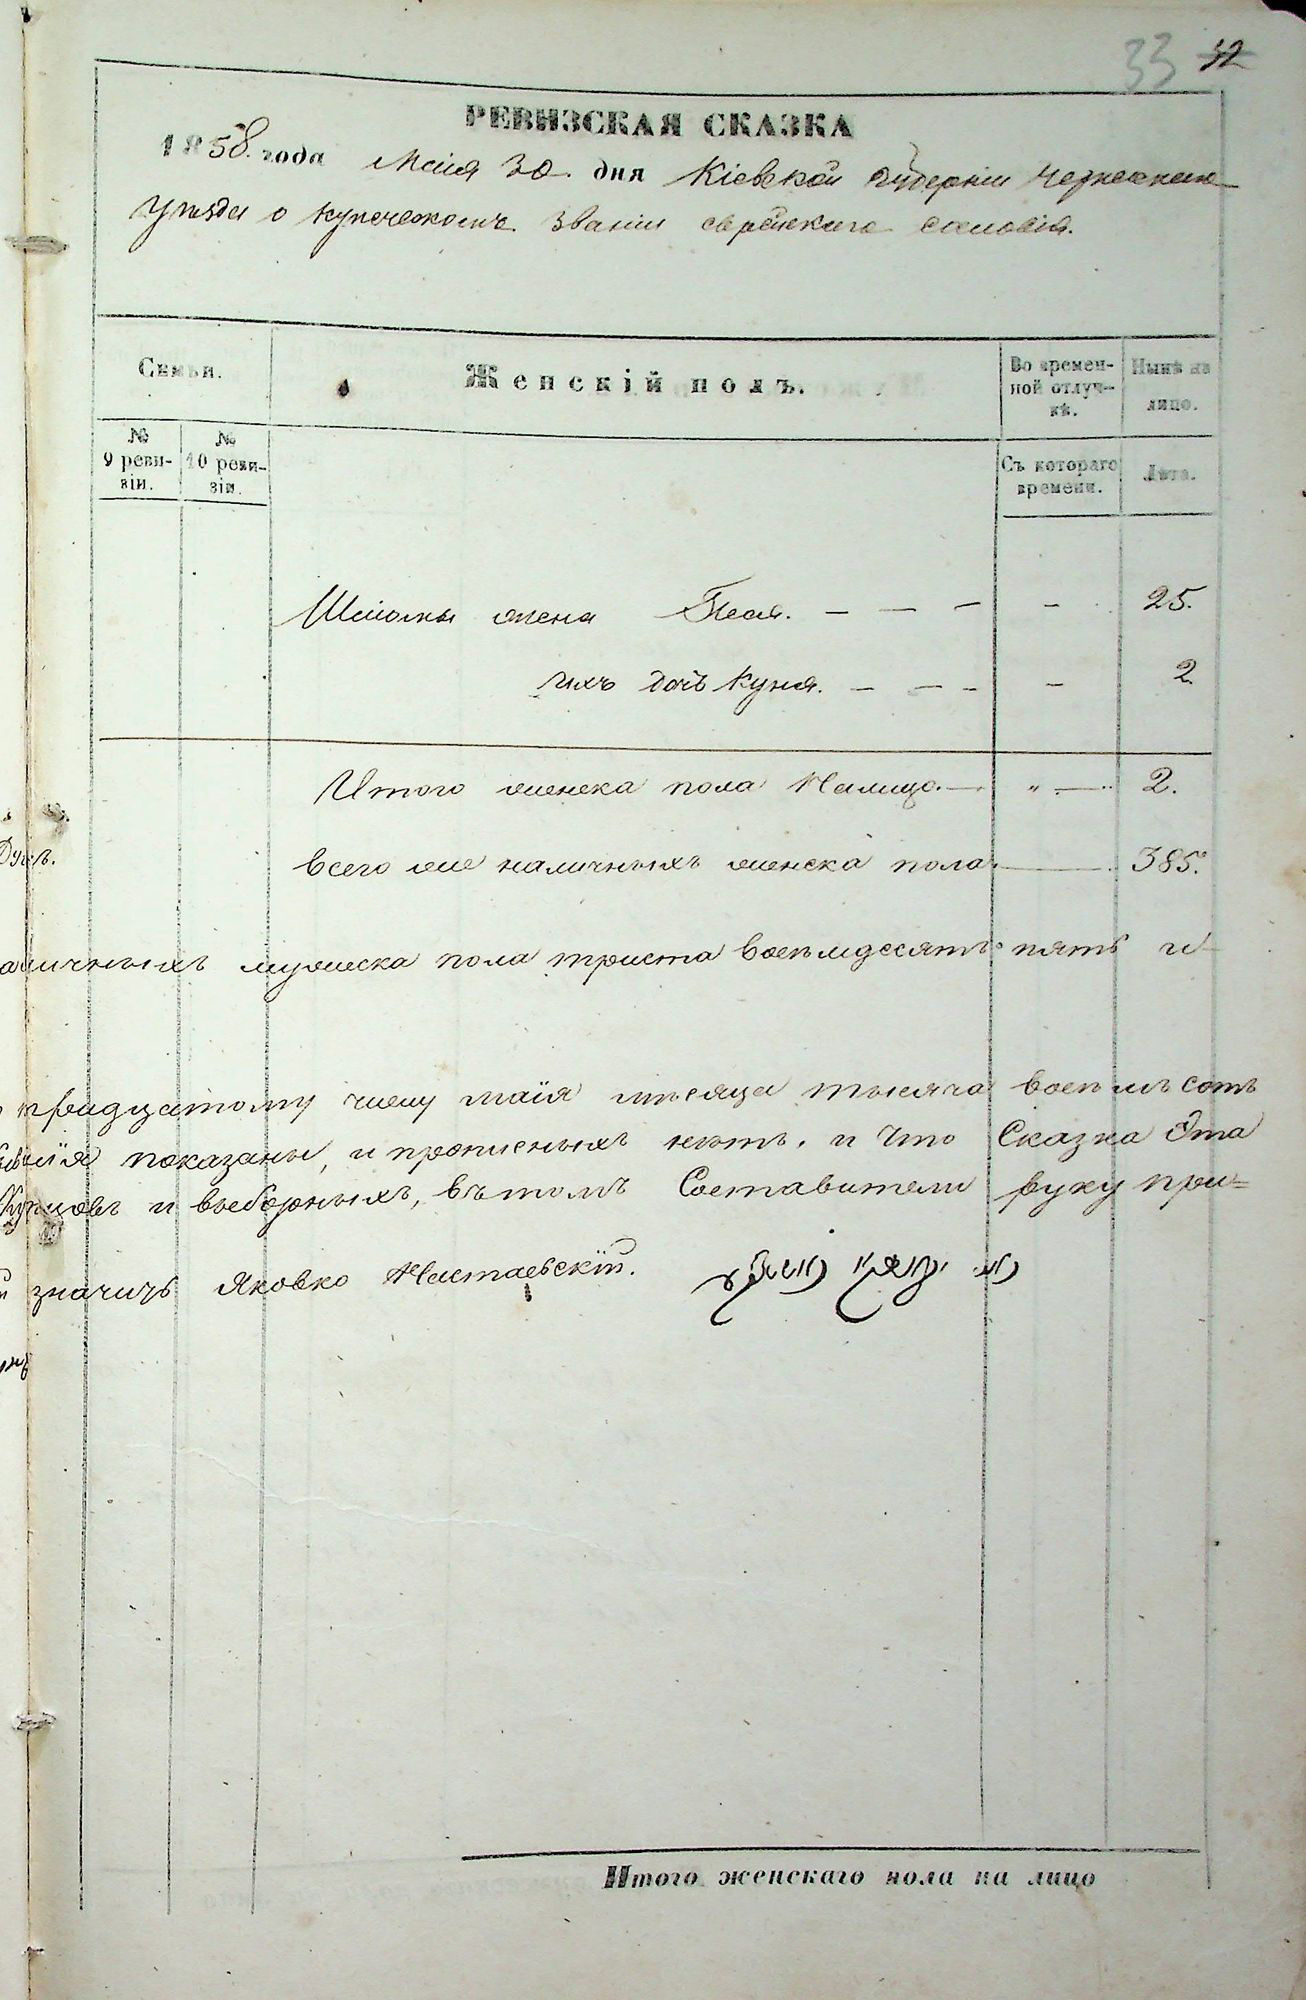 33 32
РЕВИЗСКАЯ СКАЗКА
1858 года Маія 30 дня Кіевской Губерніи Черкаскаго
уѣзда о купеческомъ званіи еврейскаго сословія.
Семьи.
Женскій полъ.
Во времен-
ной отлуч-
кѣ.
Нынѣ на
лицо.
№
9 реви-
зіи.
№
10 реви-
зіи.
Съ котораго
времени.
Лѣта.
жена Песя. — — — - 25.
ихъ дочь Куня. — — - — 2
Итого женска пола Налицо. — " — 2.
Всего же наличныхъ женска пола. — 385.
аличныхъ мужеска пола триста восемьдесятъ пять и
тридцатому числу маія мѣсяца тысяча восемь сотъ
показаны, и прописныхъ нѣтъ. и что Сказка Эта
Купцовъ и выборныхъ, въ томъ Составители руку при=
значитъ Яковко Настаевскій.
Итого женскаго пола на лицо